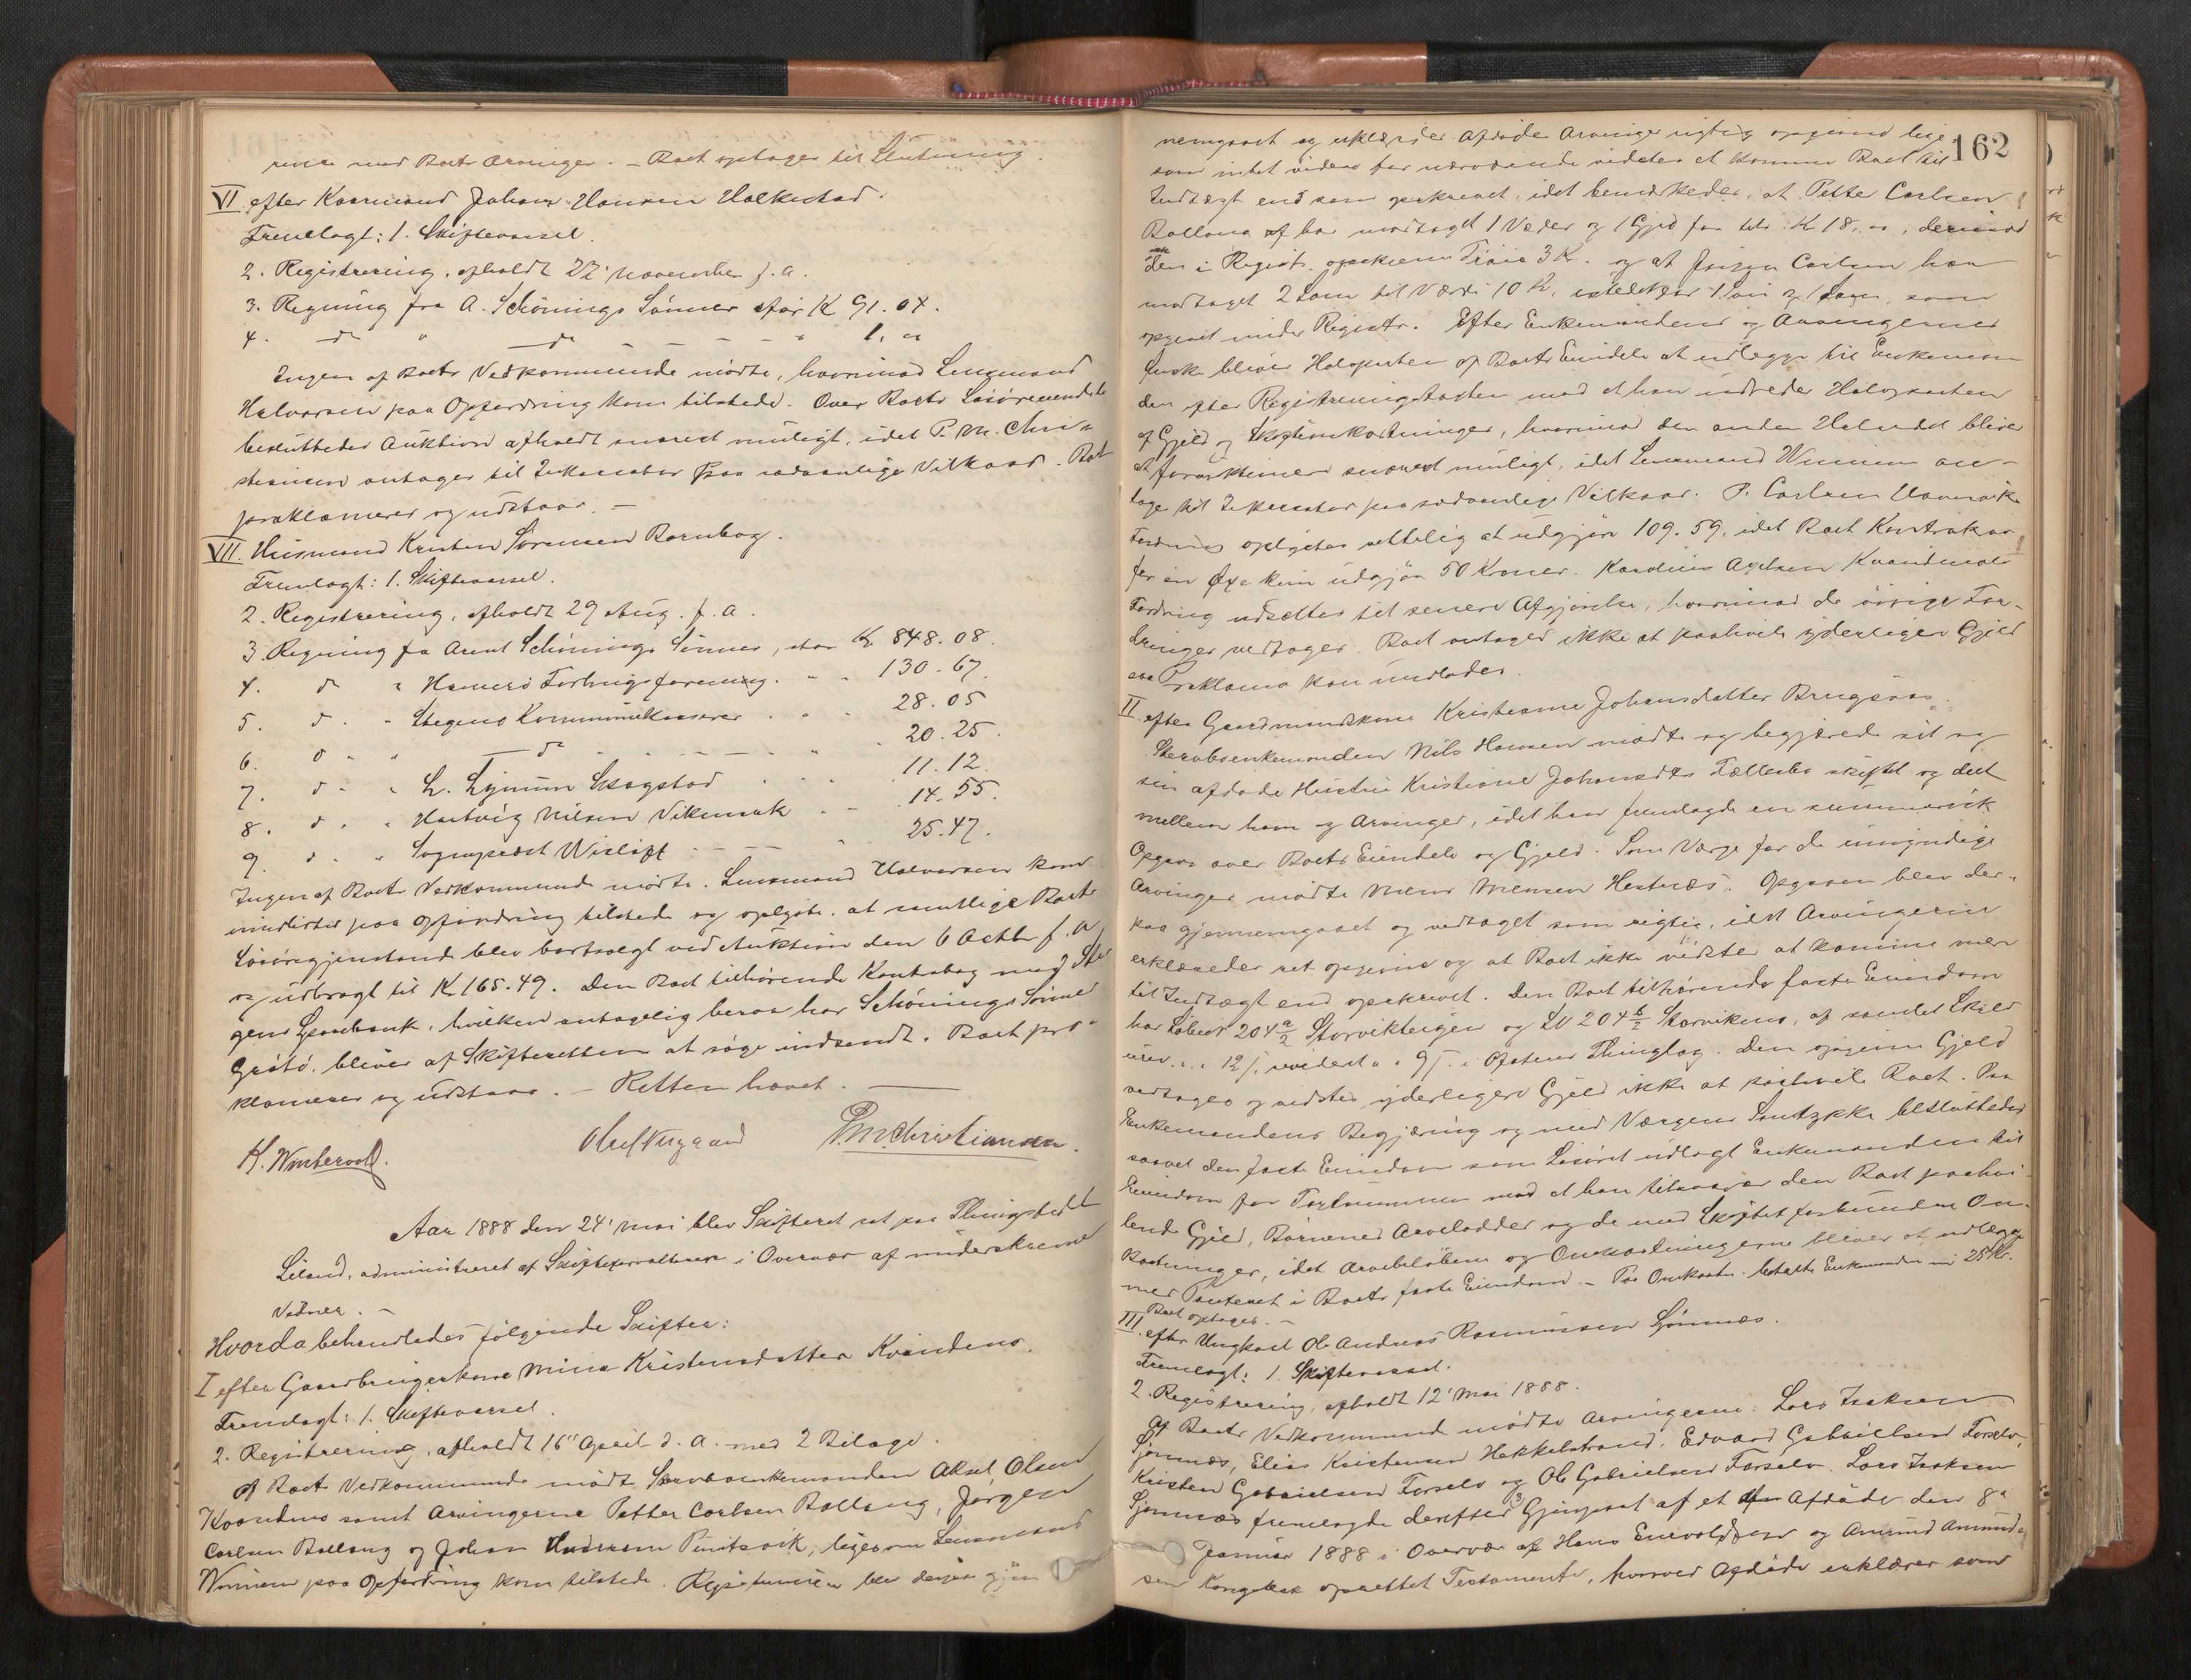 med Boets Arvinger. – Boet optages til Slutning.
VI. efter Kaarmand Johan Hansen Halkestad.
Fremlagt: 1. Skiftevarsel.
2. Registrering, afholdt 22' November f. a.
3. Regning fra A. Schönings Sönner stor K 91.04.
4. do " do – – – – " 1. "
Ingen af Boets Vedkommende mødte, hvorimod Lensmand
Halvorsen paa Opfordring kom tilstede. Over Boets Løsøreeiendele
besluttedes Auktion afholdt snarest muligt, idet P. M. Chri-
stiansen antages til Inkassator paa sædvanlige Vilkaar. Boet
proklameres og udstaar. –
VII. Husmand Kristen Sørensen Bornbog.
Fremlagt: 1. Skiftevarsel.
2. Registrering, afholdt 29 Aug. f. a.
3. Regning fra Arent Schönings Sönner, stor K 848.08.
4. do " Hamerø Forbrugsforening. " " 130.67.
5. do " Stegens Kommunekasserer . " . 28.05
6. do " do – – – " . 20.25.
7. do " L. Lynum Skogstad . . . 11.12.
8. do " Hartvig Nilsen Vikmark . – . 14.55.
9. do " Sogneprest Wisløff – – – " 25.47.
Ingen af Boets Vedkommende mødte. Lensmand Halvorsen kom
imidlertid paa Opfordring tilstede og oplyste, at samtlige Boets
Løsøregjenstande blev bortsolgt ved Auktion den 6 Octbr f. a.
og udbragt til K 165.49. Den Boet tilhørende Kontrabog med Ste-
gens Sparebank, hvilken antagelig beror hos Schönings Sønner
Grøtø, bliver af Skifteretten at søge indsendt. Boet pro-
klameres og udstaar. – Retten hævet. –
K. Wintervold. Oluf Nygaard P. M. Christiansen.
Aar 1888 den 24' Mai blev Skifteret sat paa Thingstedet
Liland, administreret af Skifteforvalteren i Overvær af underskrevne
Vidner. –
Hvorda behandledes følgende Skifter:
I efter Gaardbrugerkone Mina Kristensdatter Kvandens.
Fremlagt: 1. Skiftevarsel.
2. Registrering, afholdt 16' April d. a. med 2 Bilage.
Af Boets Vedkommende mødte Stervboenkemanden Aksel Olsen
Kvandens samt Arvingerne Petter Carlsen Balleng, Jørgen
Carlsen Balleng og Johan Andersen, ligesom Lensmand
paa Opfordring kom tilstede. Registreringen blev derpaa gjen-
162
nemgaaet og erklæredes Afdødes Arvinger rigtig opgivne lige-
som intet videre for nærværende vidstes at komme Boet til
Indtægt end som opskrevet, idet bemærkedes, at Petter Carlsen
Balleng har modtaget 1 Væder og 1 Gjed for tils. K 18, ", derimod
ikke den i Registr. opskrevne Trøie 3 K. og at Jørgen Carlsen har
modtaget 2 Lam til Værdi 10 K, istedetfor 1 Sau og 1 Lam, som
opgivet under Registr. Efter Enkemandens og Arvingernes
Ønske bliver Halvparten af Boets Eiendele at udlægge til Enkeman-
den efter Registreringstaxten mod at han udreder Halvparten
af Gjeld og Skifteomkostninger, hvorimod den anden Halvdel bliver
at forauktionere snarest muligt, idet Lensmand an-
tages til Inkassator paa sædvanlige Vilkaar. P. Carlsen
Fordring oplystes rettelig at udgjøre 109.59, idet Boet
for en Oxe kun udgjør 50 Kroner. Karolius Axelsen Kvandens
Fordring udsættes til senere Afgjørelse, hvorimod de øvrige For-
dringer vedtages. Boet antages ikke at paahvile yderligere Gjeld
saa Proklama kan undlades.
II. efter Gaardmandskone Kristiane Johansdatter Brugsaas.
Stervboenkemanden Nils Hansen mødte og begjærede sit og
sin afdøde Hustru Kristiane Johansdtrs Fællesbo skiftet og delt
mellem ham og Arvinger, idet han fremlagde en summarisk
Opgave over Boets Eiendele og Gjeld. Som Værge for de umyndige
Arvinger mødte Mons Monsen Hestnæs. Opgaven blev der-
paa gjennemgaaet og vedtaget som rigtig, idet Arvingerne
erklæredes ret opgivne og at Boet ikke vidstes at komme mer
til Indtægt end opskrevet. Den Boet tilhørende faste Eiendom
har Løbenr 204 a/2 Storvikteigen og LN 204 b/2 Storviknes, af samlet Skyld
urev. " " 12 /, revideret " " 9 /. i Ofotens Thinglag. Den opgivne Gjeld
vedtages og vidstes yderligere Gjeld ikke at paahvile Boet. Paa
Enkemandens Begjæring og med Værgens Samtykke besluttedes
saavel den faste Eiendom som Løsøret udlagt Enkemanden til
Eiendom for Taxtsummen mod at han tilsvarer den Boet paahvi-
lende Gjeld, Børnenes Arvelodder og de med Skiftet forbundne Om-
kostninger, idet Arvebeløbene og Omkostningerne bliver at udlægge
med Panteret i Boets faste Eiendom. – Paa Omkostn. betalte Enkemanden 25 Kr.
Boet optages. –
III. efter Ungkarl Ole Andreas Rasmussen Sjømnæs.
Fremlagt: 1. Skiftevarsel.
2. Registrering, afholdt 12' Mai 1888.
Af Boets Vedkommende mødte Arvingerne: Lars Isaksen
Sjømnæs, Elias Kristensen Hekkelstrand, Edvard Gabrielsen Forselv,
Kristen Gabrielsen Forselv og Ole Gabrielsen Forselv. Lars Isaksen
Sjømnæs fremlagde derefter 3 Gjenpart af et af Afdøde den 8'
Januar 1888 i Overvær af Hans Enevoldsen og Amund Amund-
sen Kongsbak oprettet Testamente, hvorved Afdøde erklærer som